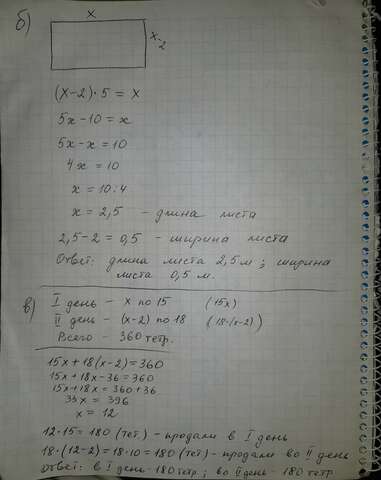 б)
x
x-2
(x-2)·5 = x
5x-10 = x
5x-x = 10
4x = 10
x = 10:4
x = 2,5 - длина листа
2,5-2 = 0,5 - ширина листа
Ответ: длина листа 2,5 м; ширина
листа 0,5 м.
в)
I день - x по 15 (15x)
II день - (x-2) по 18 (18·(x-2))
Всего - 360 тетр.
15x+18(x-2)=360
15x+18x-36=360
15x+18x=360+36
33x = 396
x = 12
12·15=180 (тет) - продали в I день
18·(12-2)=18·10=180 (тет) - продали во II день
Ответ: в I день - 180 тетр; во II день - 180 тетр